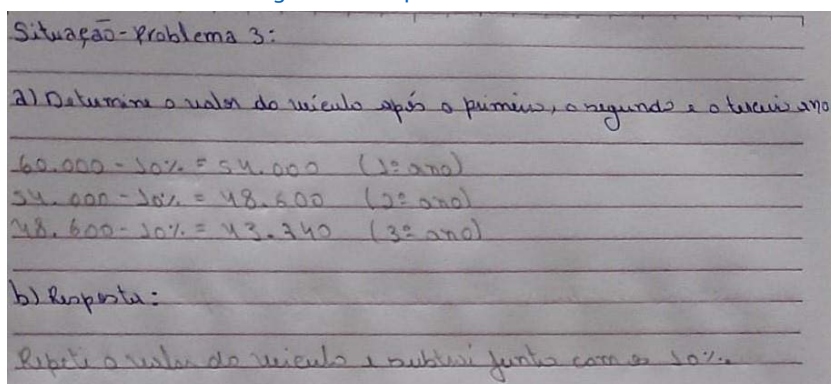 Situação-Problema 3:
a) Determine o valor do veículo após o primeiro, o segundo e o terceiro ano
60.000 - 10% = 54.000 (1º ano)
54.000 - 10% = 48.600 (2º ano)
48.600 - 10% = 43.740 (3º ano)
b) Resposta:
Repeti o valor do veiculo e subtrai junto com os 10%.